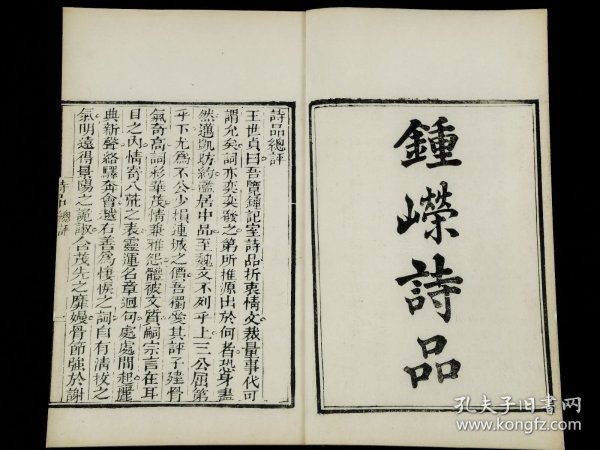 鍾嶸詩品
詩品總評
王世貞曰吾覽鍾記室詩品折衷情文裁量事代可
謂允矣詞亦奕奕發之第所推源出於何者恐未盡
然邁凱昉約濫居中品至魏文不列乎上曹公屈第
乎下尤爲不公少損連城之價吾獨愛其評子建骨
氣奇高詞彩華茂情兼雅怨體被文質嗣宗言在耳
目之內情寄八荒之表靈運名章迥句處處間起麗
典新聲絡驛奔會越石善爲悽悷之詞自有清拔之
氣明遠得景陽之詭諔含茂先之靡嫚骨節強於謝
詩品總評
一
孔夫子旧书网
www.kongfz.com